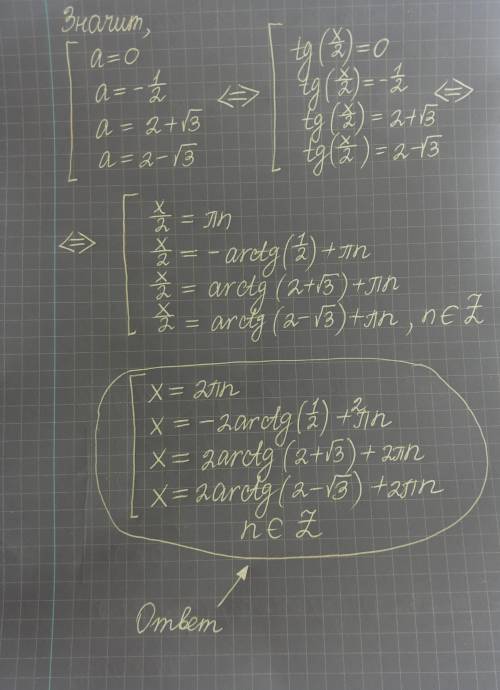 Значит,
[ a=0 <=> [ tg(x/2)=0 <=>
a=-1/2 tg(x/2)=-1/2
a=2+√3 tg(x/2)=2+√3
a=2-√3 tg(x/2)=2-√3
<=> [ x/2 = πn
x/2 = -arctg(1/2)+πn
x/2 = arctg(2+√3)+πn
x/2 = arctg(2-√3)+πn, n∈Z
[ x=2πn
x=-2arctg(1/2)+2πn
x=2arctg(2+√3)+2πn
x=2arctg(2-√3)+2πn
n∈Z
Ответ